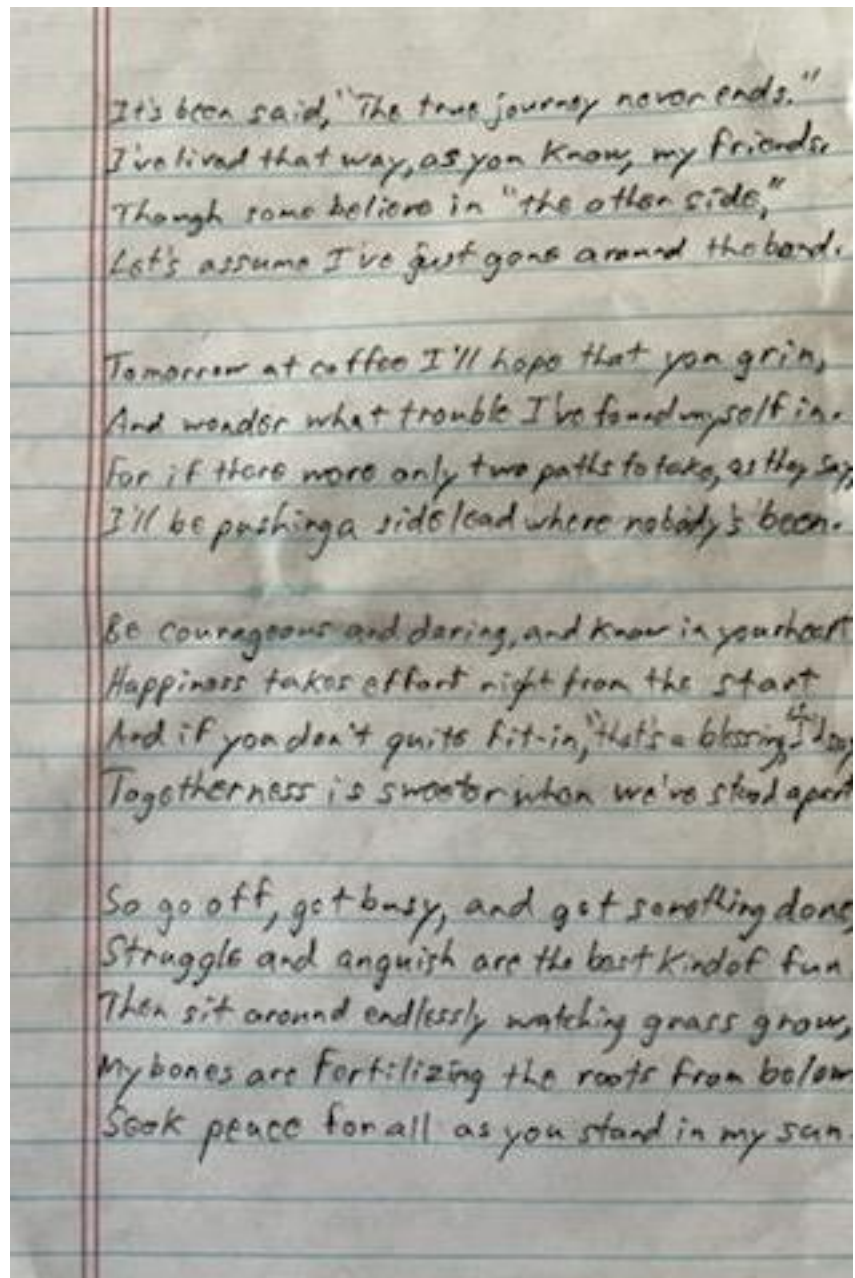 It's been said, "The true journey never ends."
I've lived that way, as you know, my friends.
Though some believe in "the other side,"
Let's assume I've just gone around the bend.
Tomorrow at coffee I'll hope that you grin,
And wonder what trouble I've found myself in.
For if there were only two paths to take, as they say,
I'll be pushing a side lead where nobody's been.
Be courageous and daring, and know in your heart
Happiness takes effort right from the start
And if you don't quite fit-in, "that's a blessing," I'd say
Togetherness is sweeter when we've stood apart
So go off, get busy, and get something done,
Struggle and anguish are the best kind of fun
Then sit around endlessly watching grass grow,
My bones are fertilizing the roots from below
Seek peace for all as you stand in my sun.